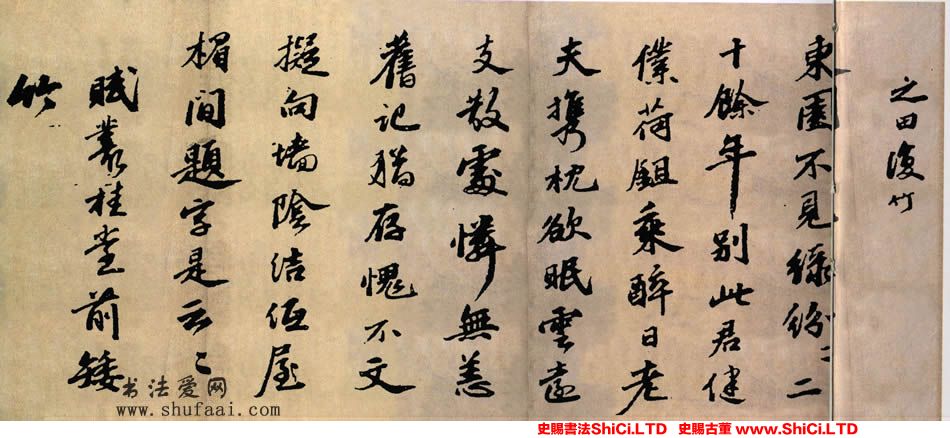 之田 竹
東園不見綠紛〻二
十餘年別此君健
僕荷鉏乘醉日老
夫攜枕欲眠雲遠
支散處憐無恙
舊記猶存愧不文
擬向墻陰結低屋
楣間題字是云〻
賦叢桂堂前矮
竹
书法爱网
www.shufaai.com
史賜書法ShiCi.LTD 史賜古董 www.SHiCi.LTD